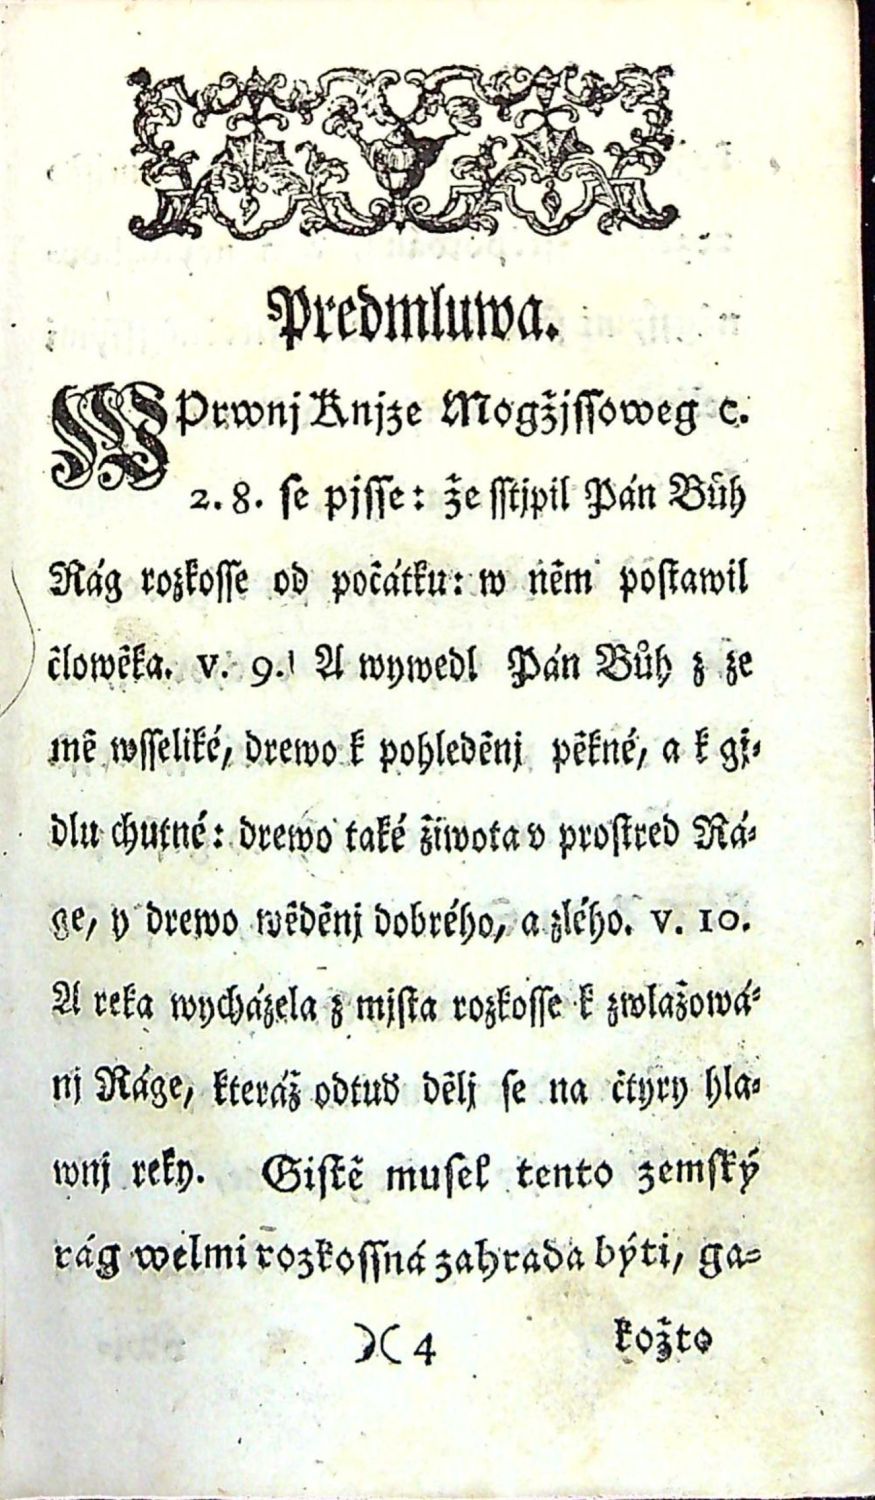 Predmluwa.
W Prwnj Knjze Mogžjssoweg c.
2. 8. se pjsse: že sstjpil Pán Bůh
Rág rozkosse od počátku: w něm postawil
člowěka. v. 9. A wywedl Pán Bůh z ze
mě wsseliké, drewo k pohleděnj pěkné, a k gj-
dlu chutné: drewo také žiwota v prostred Rá-
ge, y drewo wěděnj dobrého, a zlého. v. 10.
A reka wycházela z mjsta rozkosse k zwlažowá-
nj Ráge, kteráž odtud dělj se na čtyry hla-
wnj reky. Gistě musel tento zemský
rág welmi rozkossná zahrada býti, ga-
)( 4 kožto